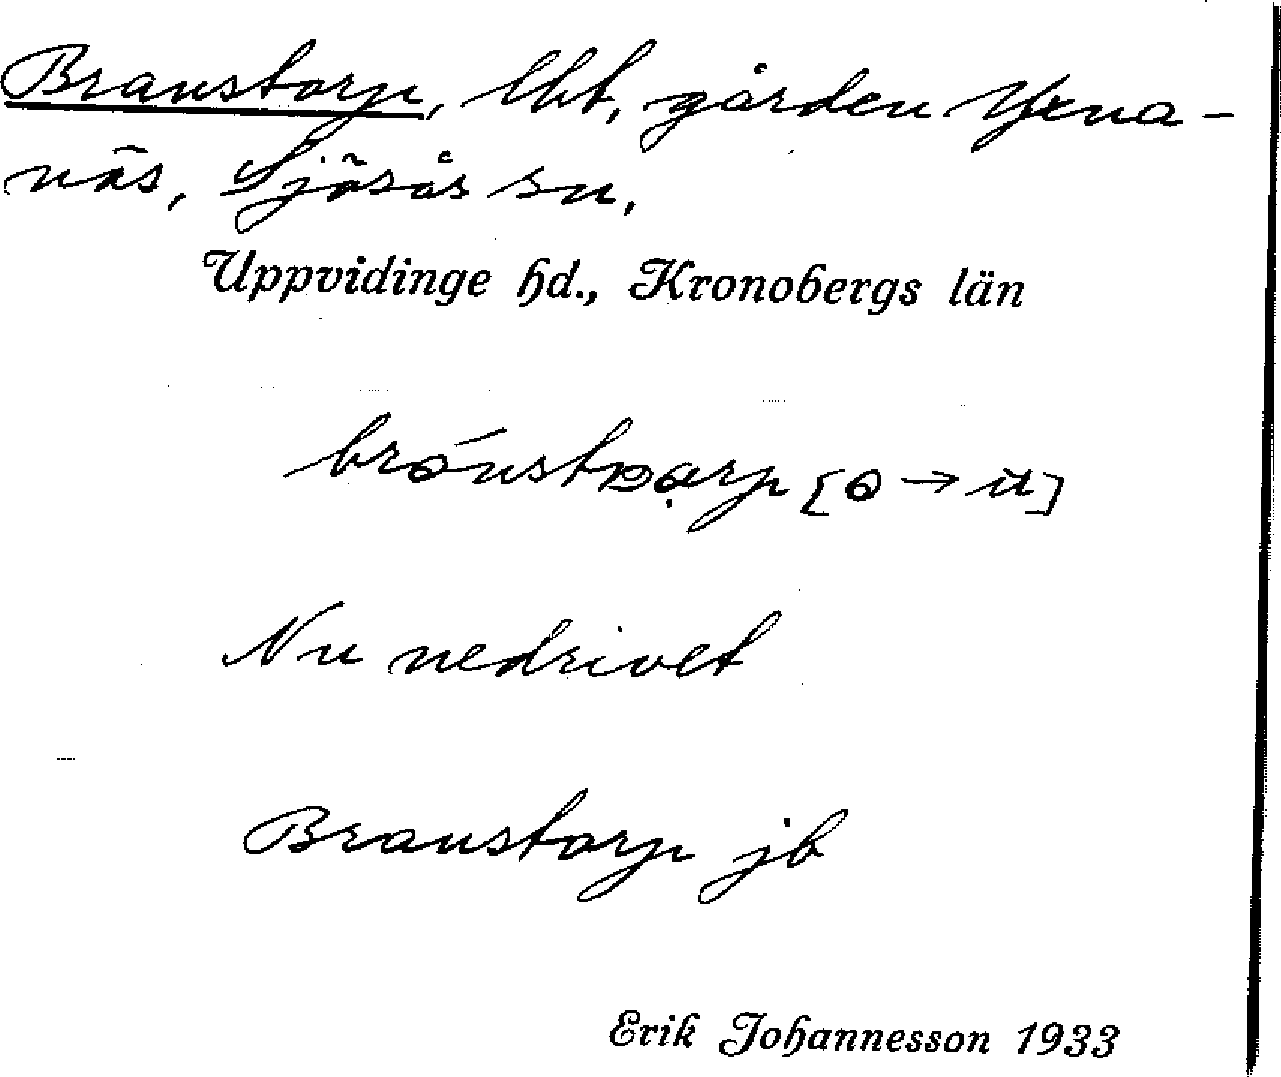 Branstorp, lht, gården Yxna-
näs, Sjösås sn,
Uppvidinge hd., Kronobergs län
Nu nedrivet
Branstorp jb
Erik Johannesson 1933